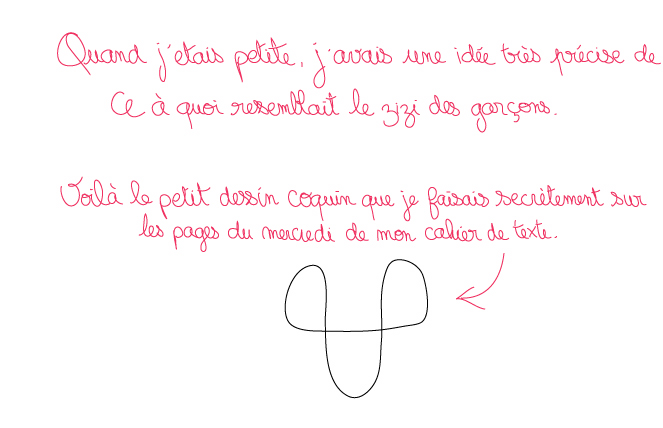 Quand j'étais petite, j'avais une idée très précise de
ce à quoi ressemblait le zizi des garçons.
Voilà le petit dessin coquin que je faisais secrètement sur
les pages du mercredi de mon cahier de texte.